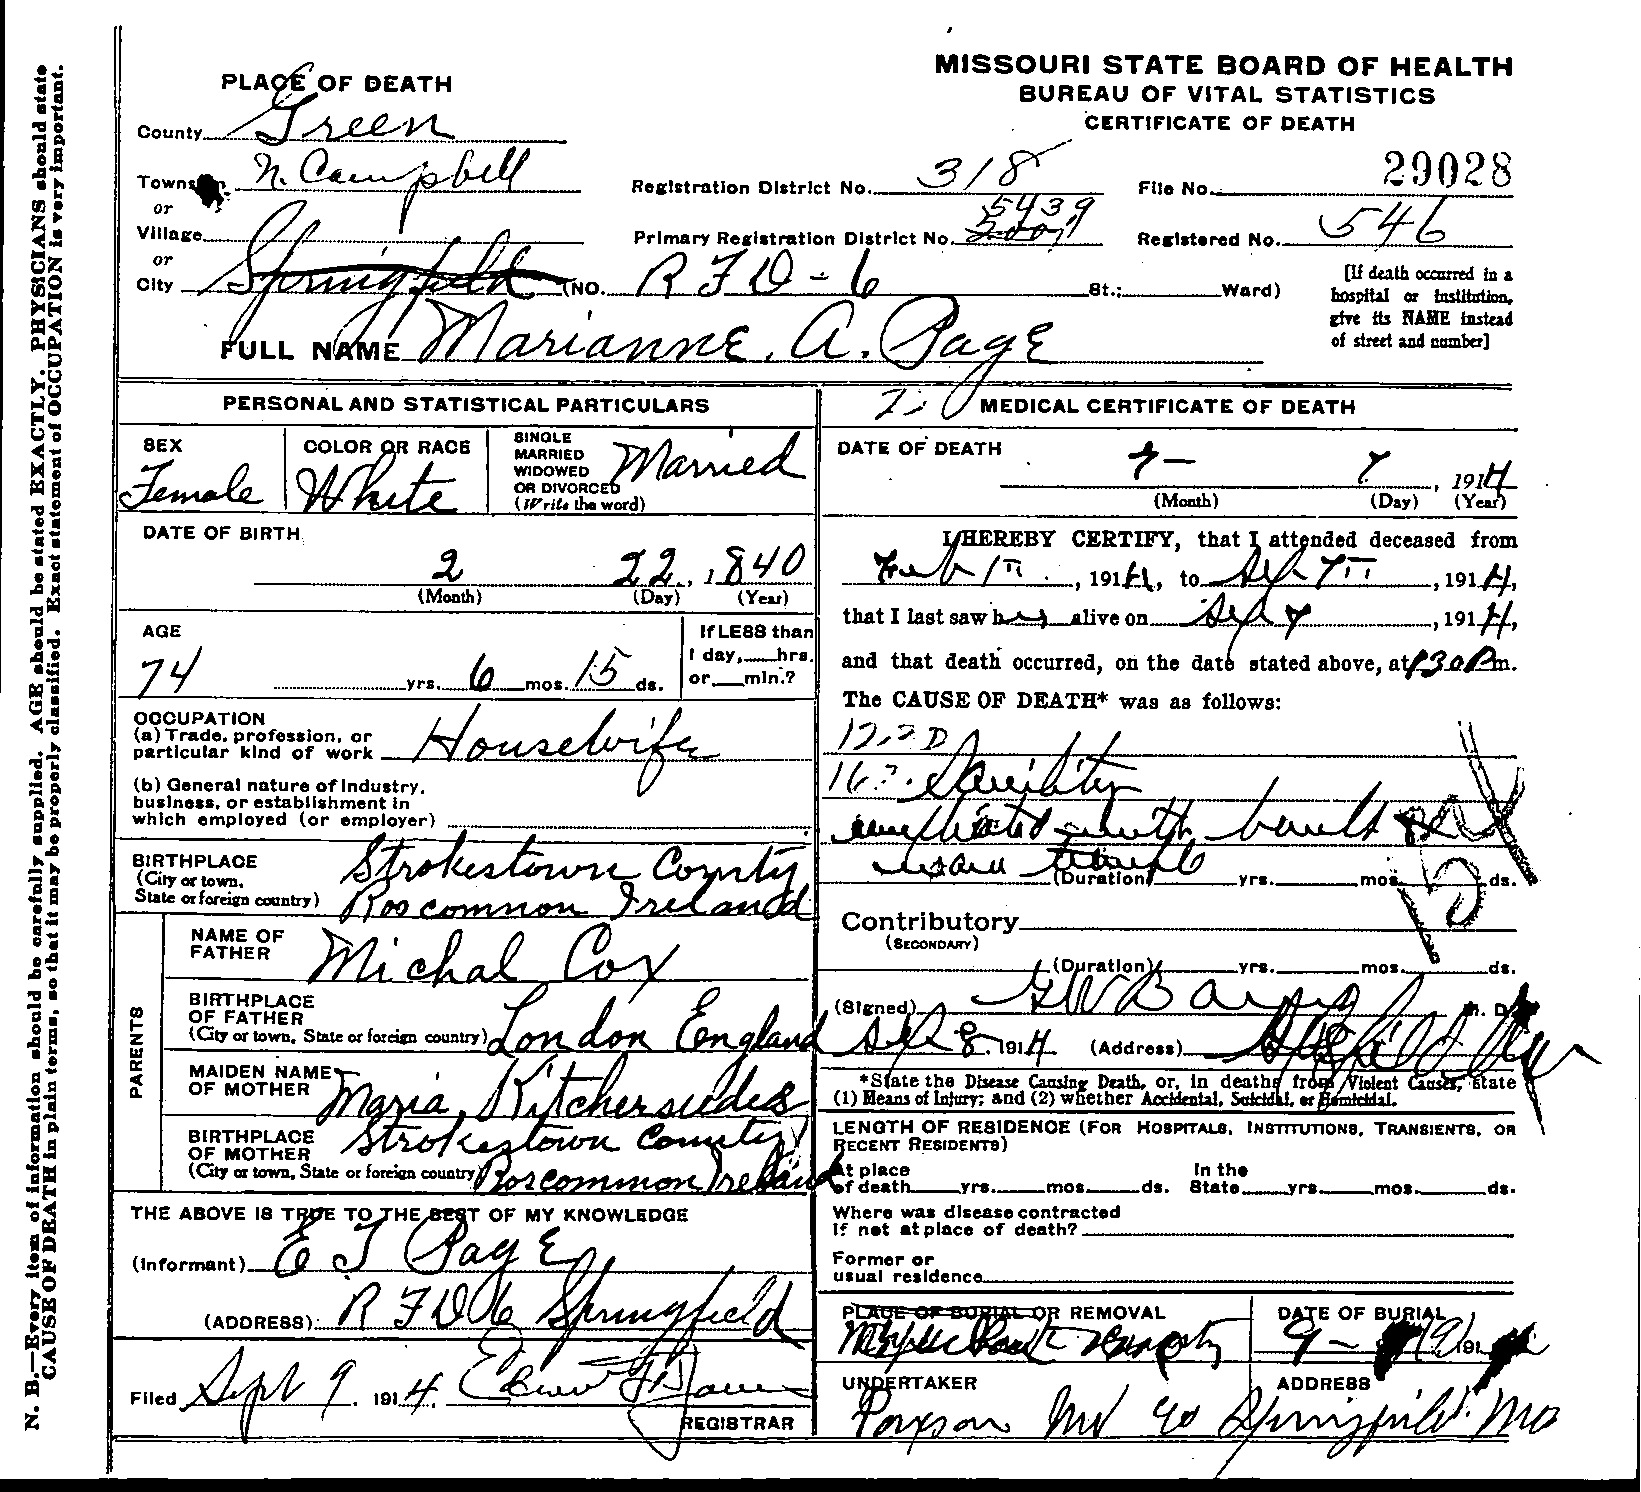 MISSOURI STATE BOARD OF HEALTH
BUREAU OF VITAL STATISTICS
CERTIFICATE OF DEATH
PLACE OF DEATH
County Green
Township N. Campbell
or
Village
or
City Springfield (NO. R F D - 6 St.; Ward)
Registration District No. 318
Primary Registration District No. 5439
File No. 29028
Registered No. 546
[If death occurred in a
hospital or institution,
give its NAME instead
of street and number]
FULL NAME Marianne. A. Page
PERSONAL AND STATISTICAL PARTICULARS
SEX
Female
COLOR OR RACE
White
SINGLE
MARRIED
WIDOWED
OR DIVORCED
(Write the word)
Married
DATE OF BIRTH
2 22, 1840
(Month) (Day) (Year)
AGE
74 yrs. 6 mos. 15 ds.
If LESS than
1 day, hrs.
or min.?
OCCUPATION
(a) Trade, profession, or
particular kind of work Housewife
(b) General nature of industry,
business, or establishment in
which employed (or employer)
BIRTHPLACE
(City or town,
State or foreign country)
Strokestown County
Roscommon Ireland
PARENTS
NAME OF
FATHER
Michal Cox
BIRTHPLACE
OF FATHER
(City or town, State or foreign country) London England
MAIDEN NAME
OF MOTHER
Maria,
BIRTHPLACE
OF MOTHER
(City or town, State or foreign country)
Strokestown County
Roscommon Ireland
THE ABOVE IS TRUE TO THE BEST OF MY KNOWLEDGE
(Informant) E J Page
(ADDRESS) R F D 6 Springfield
Filed Sept 9, 1914.
REGISTRAR
MEDICAL CERTIFICATE OF DEATH
DATE OF DEATH
7, 1914
(Month) (Day) (Year)
I HEREBY CERTIFY, that I attended deceased from
Feb 1, 1914, to Sep 7, 1914,
that I last saw her alive on Sep 7, 1914,
and that death occurred, on the date stated above, at 130 P m.
The CAUSE OF DEATH* was as follows:
(Duration) yrs. mos. ds.
Contributory
(SECONDARY)
(Duration) yrs. mos. ds.
(Signed) G W M. D.
Sep 8, 1914 (Address)
*State the Disease Causing Death, or, in deaths from Violent Causes, state
(1) Means of Injury; and (2) whether Accidental, Suicidal, or Homicidal.
LENGTH OF RESIDENCE (FOR HOSPITALS, INSTITUTIONS, TRANSIENTS, OR
RECENT RESIDENTS)
At place
of death yrs. mos. ds.
In the
State yrs. mos. ds.
Where was disease contracted
if not at place of death?
Former or
usual residence
PLACE OF BURIAL OR REMOVAL
DATE OF BURIAL
9 - 191
UNDERTAKER
Paxson
ADDRESS
Springfield. Mo
N. B.—Every item of information should be carefully supplied. AGE should be stated EXACTLY. PHYSICIANS should state
CAUSE OF DEATH in plain terms, so that it may be properly classified. Exact statement of OCCUPATION is very important.